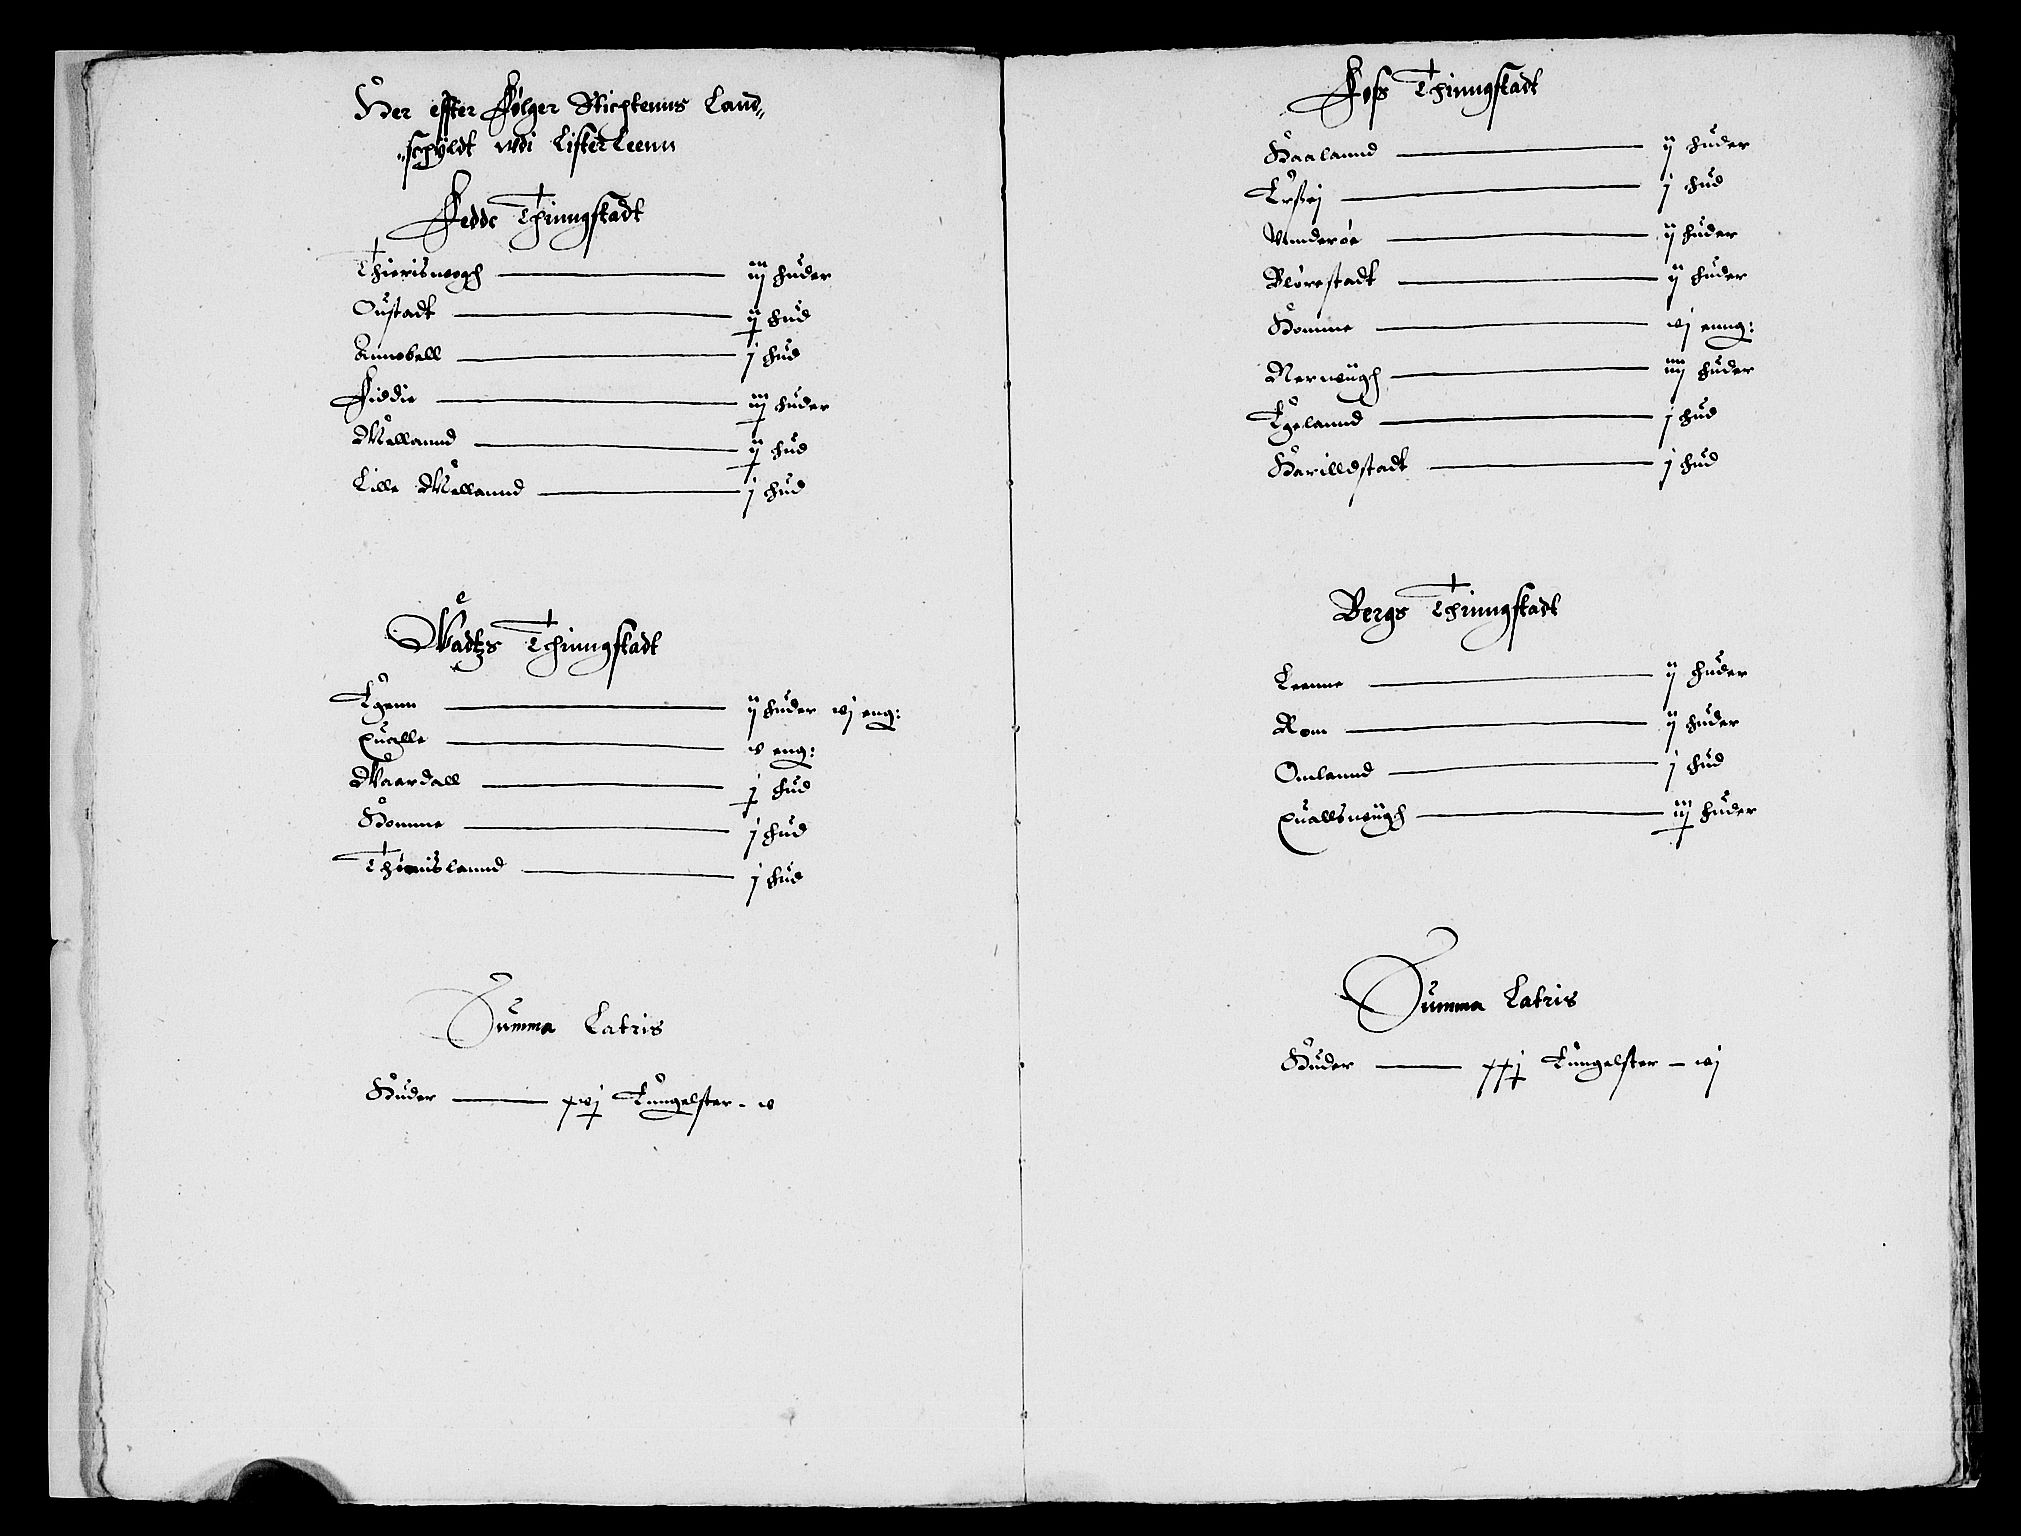 Her effter Følger Stichtenns Land„
„schyldt wdi Lister Leenn
Fedde Thinngstadt
Thierisuogh — iij huder
Oustadt — ij hud
Annebell — j hud
Fiddie — iij huder
Mellannd — ij hud
Lille Mellannd — j hud
Wadtzs Thinngstadt
Egenn — ij huder vj eng:
Qualle — v eng:
Waardall — j hud
Homme — j hud
Thoniislannd — j hud
Summa Latris
Huder — xvj Eungelster - v
Foss Thinngstadt
Haalannd — ij huder
Ersøj — j hud
Vnnderøe — ij huder
Blørestadt — ij huder
Homme — vj enng:
Nerwiigh — iiij huder
Egelannd — j hud
Harilldstadt — j hud
Bergs Thinngstadt
Leenne — ij huder
Rom — ij huder
Omlannd — j hud
Quallswiigh — iij huder
Summa Latris
Huder — xxj Eungelster — vj